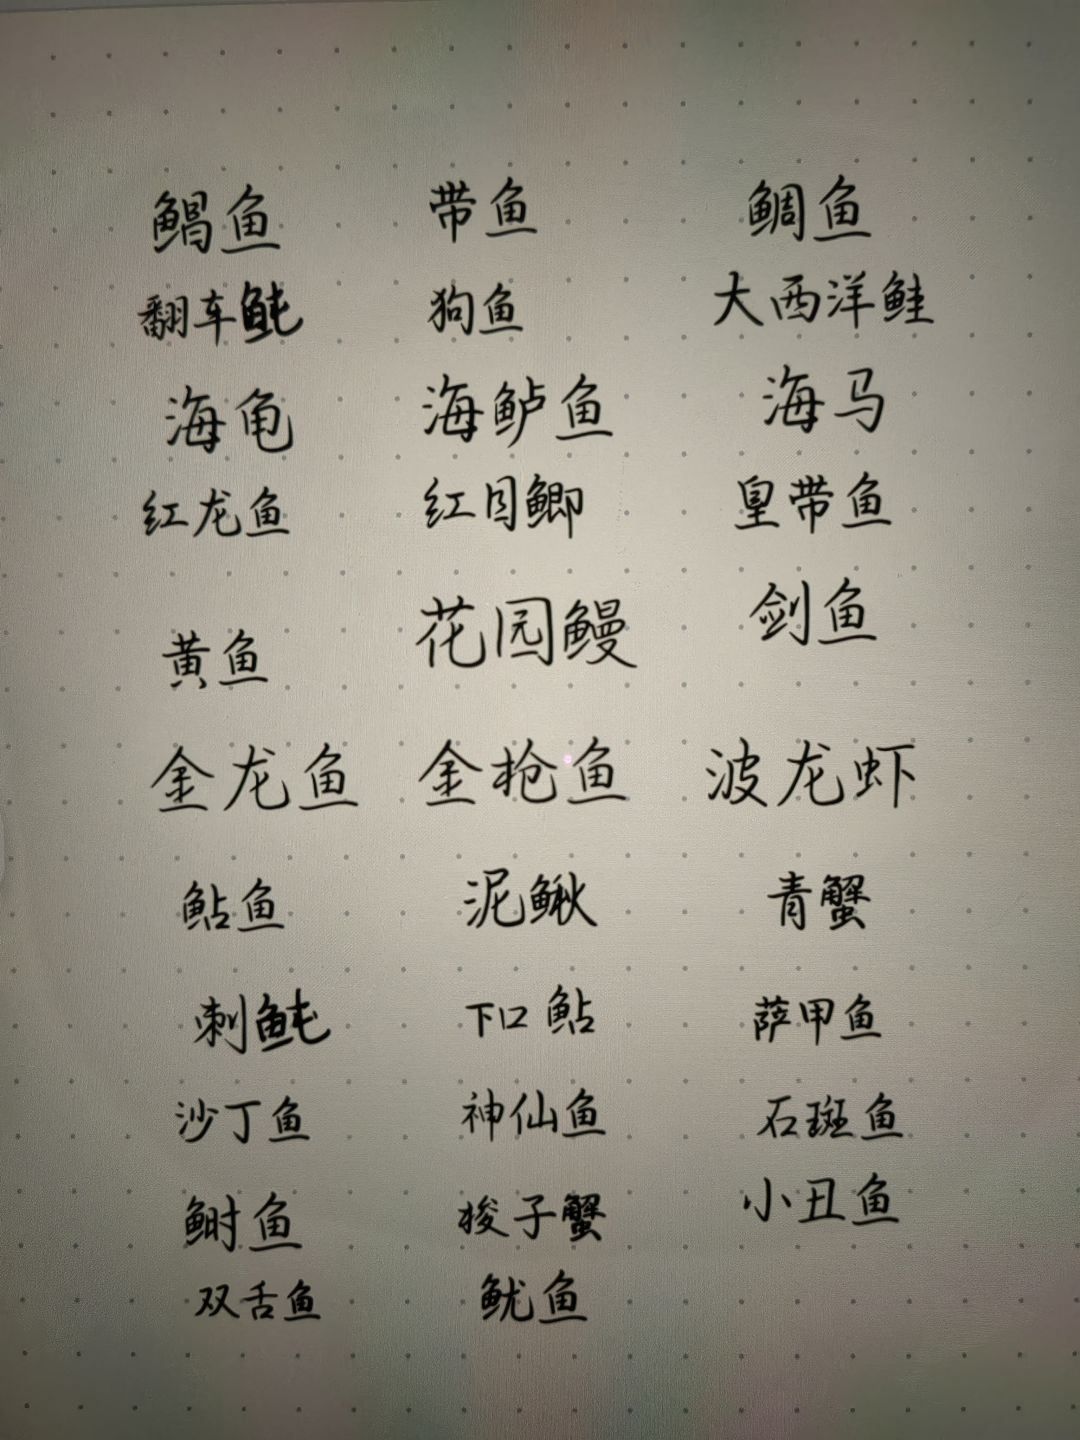 鲳鱼 带鱼 鲷鱼
翻车鲀 狗鱼 大西洋鲑
海龟 海鲈鱼 海马
红龙鱼 红目鲫 皇带鱼
黄鱼 花园鳗 剑鱼
金龙鱼 金枪鱼 波龙虾
鲇鱼 泥鳅 青蟹
刺鲀 下口鲇 萨甲鱼
沙丁鱼 神仙鱼 石斑鱼
鲥鱼 梭子蟹 小丑鱼
双舌鱼 鱿鱼